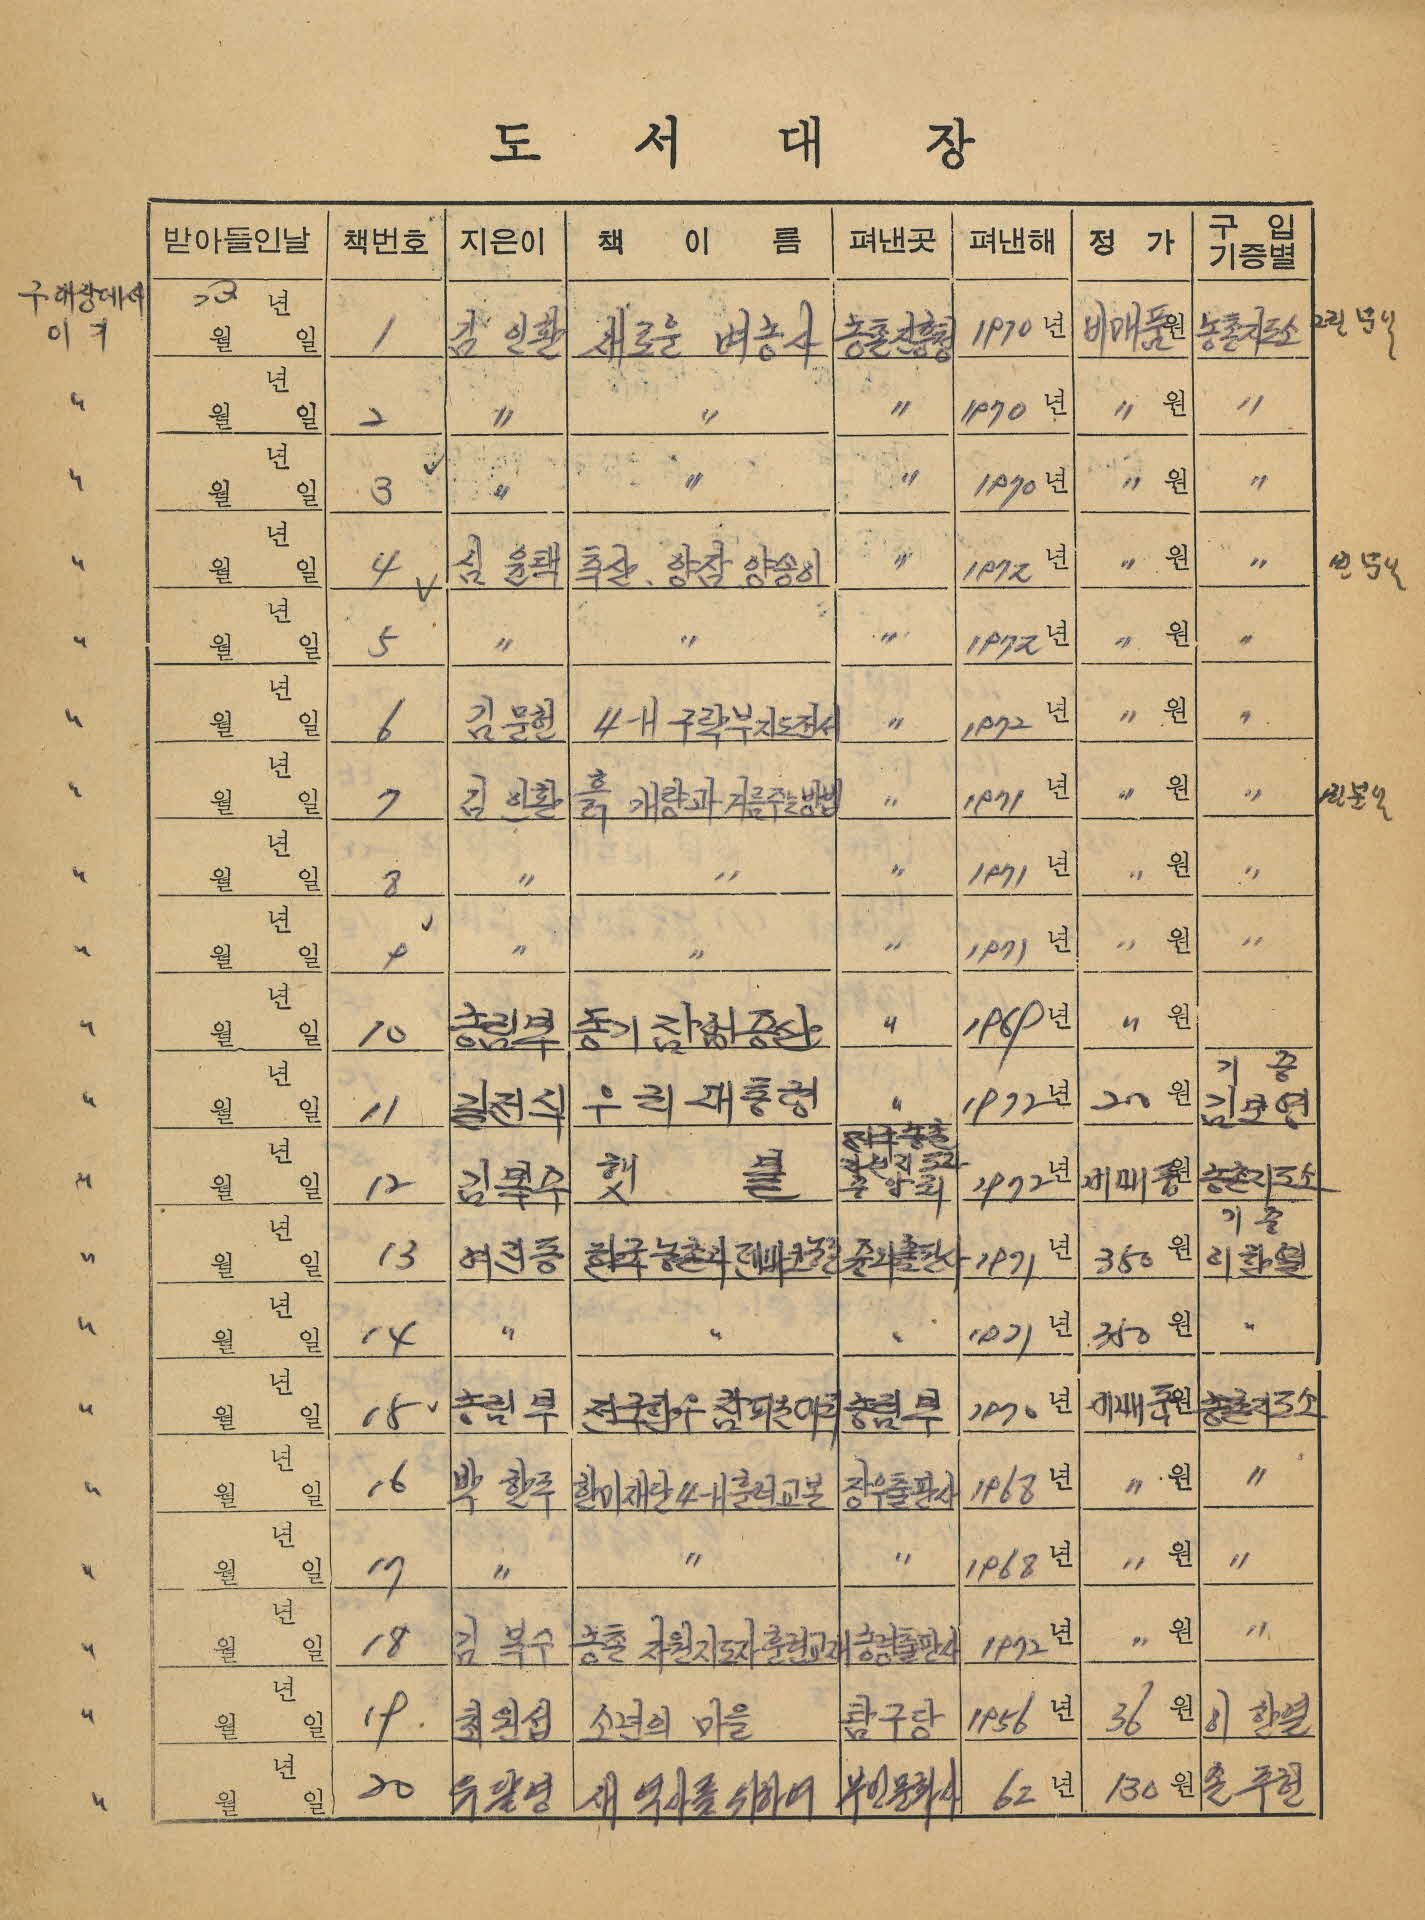 도 서 대 장
받아들인날 책번호 지은이 책 이 름 펴낸곳 펴낸해 정 가 구 입 기증별
구대장에서 이기 년 월 일 1 김인환 새로운 벼농사 농촌진흥청 1970년 비매품원 농촌지도소
〃 년 월 일 2 〃 〃 〃 1970년 〃 원 〃
〃 년 월 일 3 〃 〃 〃 1970년 〃 원 〃
〃 년 월 일 4 심윤택 추잠. 양잠 양송이 〃 1972년 〃 원 〃
〃 년 월 일 5 〃 〃 〃 1972년 〃 원 〃
〃 년 월 일 6 김문헌 4-H 구락부지도전서 〃 1972년 〃 원 〃
〃 년 월 일 7 김인환 흙 개량과 거름주는방법 〃 1971년 〃 원 〃
〃 년 월 일 8 〃 〃 〃 1971년 〃 원 〃
〃 년 월 일 9 〃 〃 〃 1971년 〃 원 〃
〃 년 월 일 10 농림부 농기 〃 1969년 〃 원
〃 년 월 일 11 우리 대통령 〃 1972년 200원 기증
〃 년 월 일 12 김복수 횃 불 1972년 비매품원 농촌지도소
〃 년 월 일 13 한국농촌과 덴마크 1971년 350원 기증
〃 년 월 일 14 〃 〃 〃 1971년 350원 〃
〃 년 월 일 15 농림부 전국한우 참피온대회 농림부 1970년 비매품원 농촌지도소
〃 년 월 일 16 박한주 한미재단4-H훈련교본 장우출판사 1968년 〃 원 〃
〃 년 월 일 17 〃 〃 〃 1968년 〃 원 〃
〃 년 월 일 18 김복수 농촌 자원지도자훈련교재 농림출판사 1972년 〃 원 〃
〃 년 월 일 19 최원섭 소년의 마을 탐구당 1956년 36원 이한열
〃 년 월 일 20 유달영 새 역사를 위하여 부인문화사 62년 130원